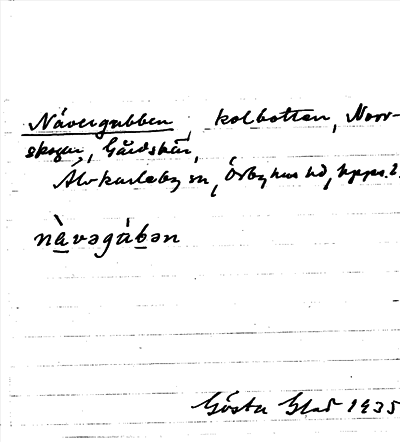 Nävergubben, kolbotten, Norr-
skogen, Gårdskär,
Älvkarleby sn, Örbyhus hd, Uppl.
nàvəgábən
Gösta Glad 1935